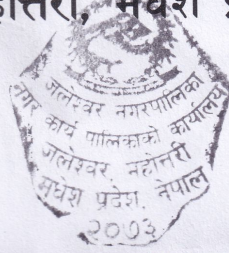 होत्तरी, मधेश प्र
जलेश्वर नगरपालिका
नगर कार्य पालिकाको कार्यालय
जलेश्वर, महोत्तरी
मधेश प्रदेश, नेपाल
२०७३